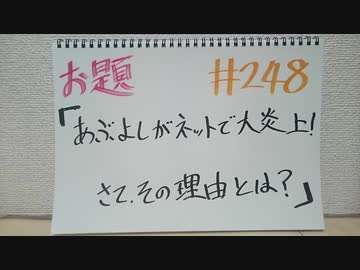 お題 #248
「あぶよしがネットで大炎上!
さて、その理由とは?」